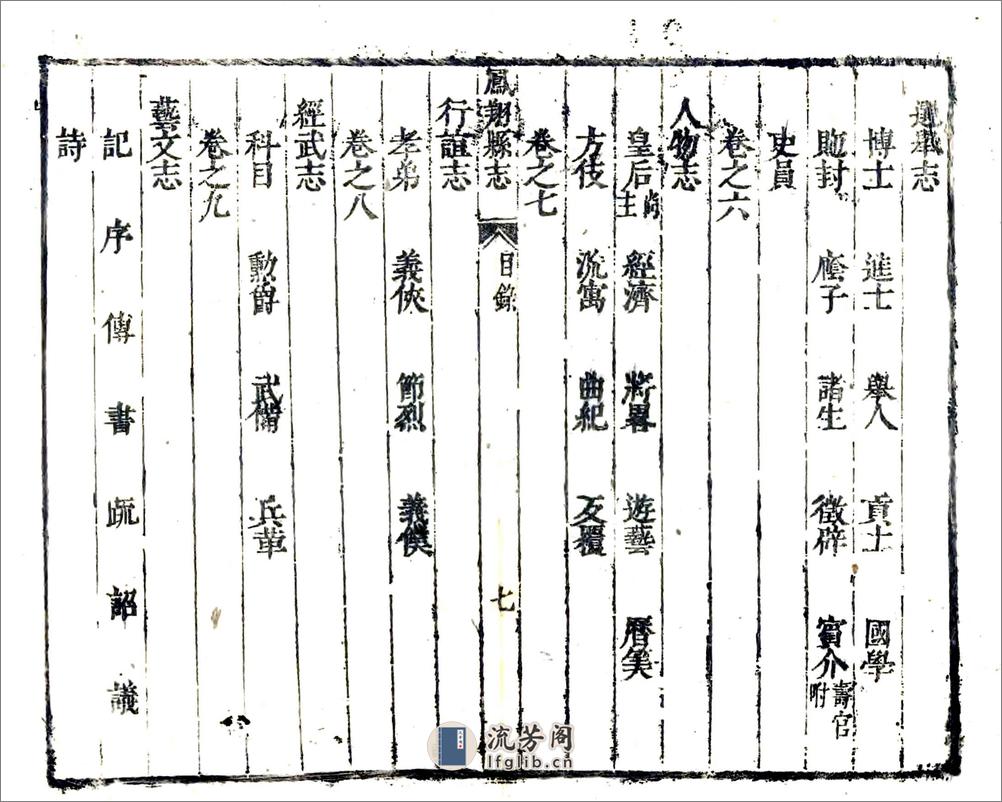 選舉志
博士 進士 舉人 貢士 國學
貤封 廕子 諸生 徵辟 賓介 壽官附
吏員
卷之六
人物志
皇后 尚主 經濟 將畧 遊藝 曆
方伎 流寓 曲紀
卷之七
鳳翔縣志 目錄 七
行誼志
孝弟 義俠 節烈 義僕
卷之八
經武志
科目 勳爵 武備 兵革
卷之九
藝文志
記 序 傳 書 疏 詔 議
詩
流芳阁
lfglib.cn